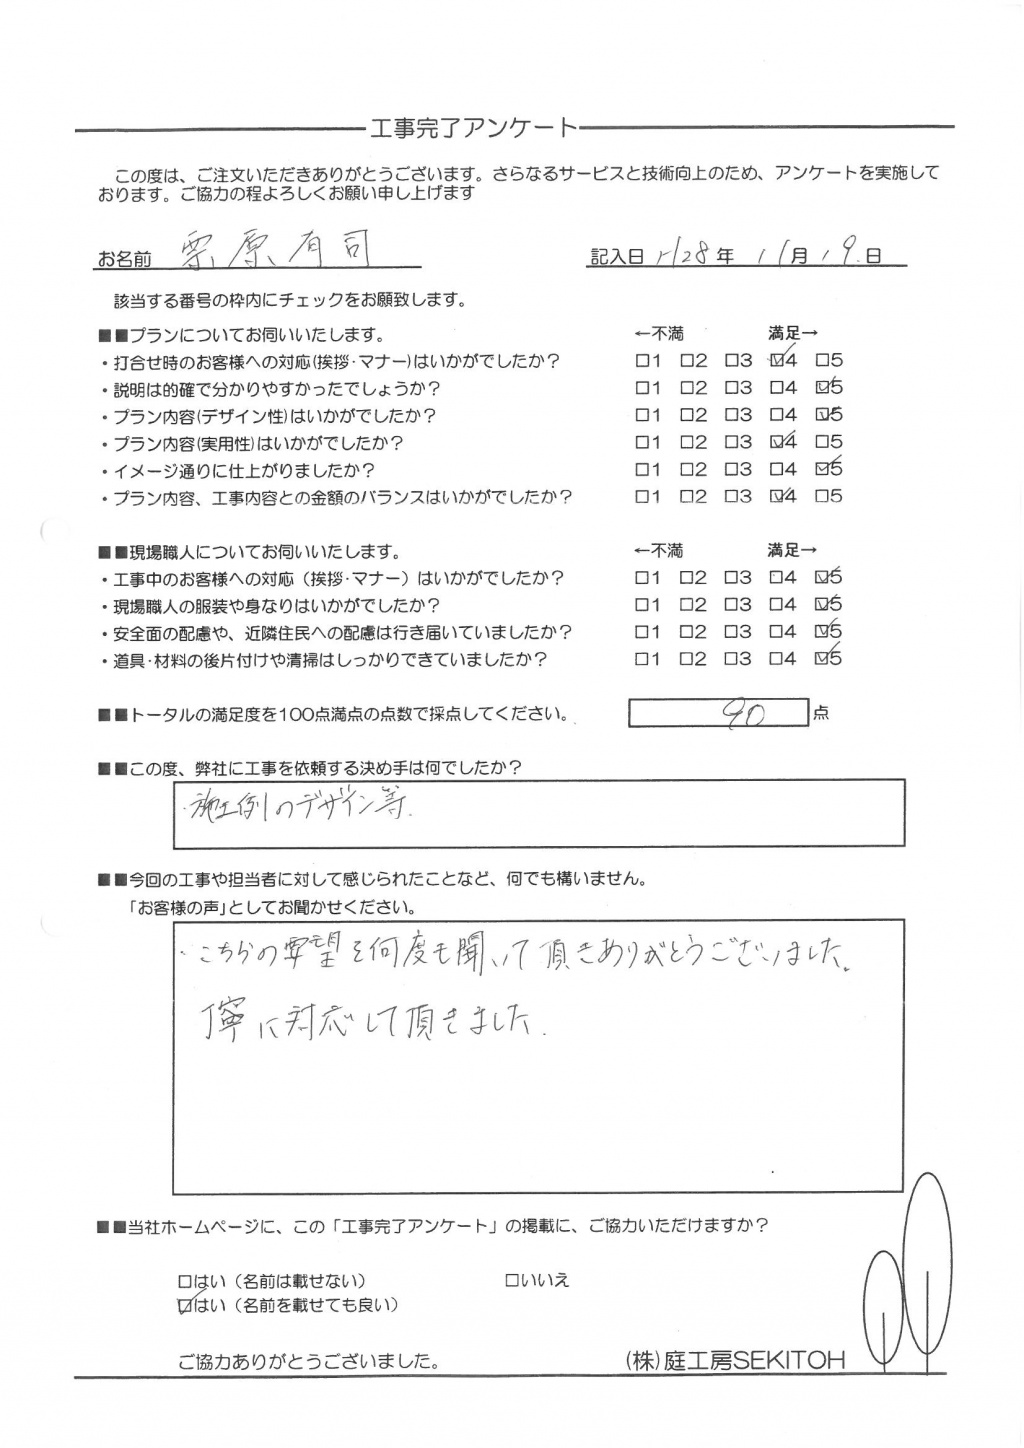 工事完了アンケート
この度は、ご注文いただきありがとうございます。さらなるサービスと技術向上のため、アンケートを実施して
おります。ご協力の程よろしくお願い申し上げます
お名前 栗原有司 記入日 H28年 11月 19日
該当する番号の枠内にチェックをお願致します。
■■プランについてお伺いいたします。 ←不満 満足→
・打合せ時のお客様への対応(挨拶・マナー)はいかがでしたか? □1 □2 □3 ☑4 □5
・説明は的確で分かりやすかったでしょうか? □1 □2 □3 □4 ☑5
・プラン内容(デザイン性)はいかがでしたか? □1 □2 □3 □4 ☑5
・プラン内容(実用性)はいかがでしたか? □1 □2 □3 ☑4 □5
・イメージ通りに仕上がりましたか? □1 □2 □3 □4 ☑5
・プラン内容、工事内容との金額のバランスはいかがでしたか? □1 □2 □3 ☑4 □5
■■現場職人についてお伺いいたします。 ←不満 満足→
・工事中のお客様への対応（挨拶・マナー）はいかがでしたか? □1 □2 □3 □4 ☑5
・現場職人の服装や身なりはいかがでしたか? □1 □2 □3 □4 ☑5
・安全面の配慮や、近隣住民への配慮は行き届いていましたか? □1 □2 □3 □4 ☑5
・道具・材料の後片付けや清掃はしっかりできていましたか? □1 □2 □3 □4 ☑5
■■トータルの満足度を100点満点の点数で採点してください。 90 点
■■この度、弊社に工事を依頼する決め手は何でしたか?
・施工例のデザイン等.
■■今回の工事や担当者に対して感じられたことなど、何でも構いません。
「お客様の声」としてお聞かせください。
・こちらの要望を何度も聞いて頂きありがとうございました。
丁寧に対応して頂きました.
■■当社ホームページに、この「工事完了アンケート」の掲載に、ご協力いただけますか?
□はい（名前は載せない） □いいえ
☑はい（名前を載せても良い）
ご協力ありがとうございました。 (株)庭工房SEKITOH